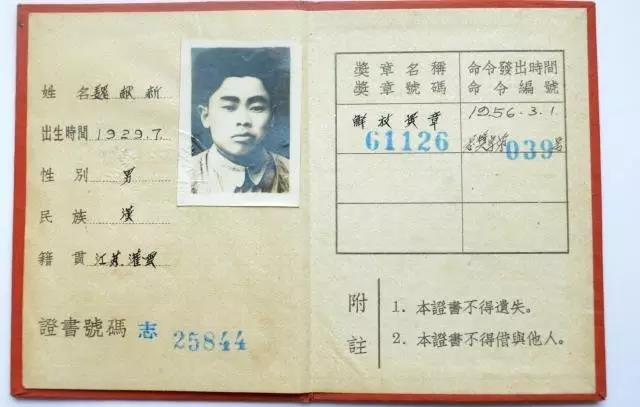 姓名 魏献新
出生時間 1929.7
性別 男
民族 漢
籍貫 江苏灌云
證書號碼 志 25844
奬章名稱
奬章號碼
命令發出時間
命令編號
解放奖章
61126
1956.3.1.
039号
附註
1. 本證書不得遺失。
2. 本證書不得借與他人。